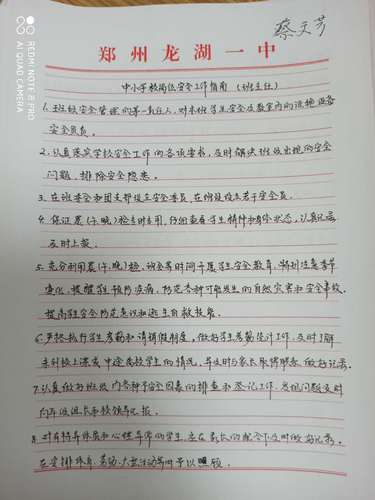 REDMI NOTE 8 PRO
AI QUAD CAMERA
蔡文芳
郑州龙湖一中
中小学校岗位安全工作指南(班主任)
1.班级安全管理的第一责任人,对本班学生安全及教室内的设施设备
安全负责。
2.认真落实学校安全工作的各项要求,及时解决班级出现的安全
问题,排除安全隐患。
3.在班委会和团支部设立安全委员,在班级设立若干安全员。
4.保证晨(午、晚)检专时专用,仔细查看学生精神和身体状态,认真记录
及时上报。
5.充分利用晨(午、晚)检、班会等时间开展学生安全教育,特别注意季节
变化,提醒学生预防疾病,防范各种可能发生的自然灾害和安全事故,
提高学生安全防范意识和逃生自救技能。
6.严格执行学生考勤和请销假制度,做好学生考勤统计工作,及时了解
未到校上课或中途离校学生的情况,并及时与家长取得联系,做好记录。
7.认真做好班级内各种不安全因素的排查和登记工作,发现问题及时
向年级组长和校领导汇报。
8.对有特异体质和心理异常的学生,应在家长的配合下及时做好记录。
在安排体育、劳动、大型活动等时予以照顾。